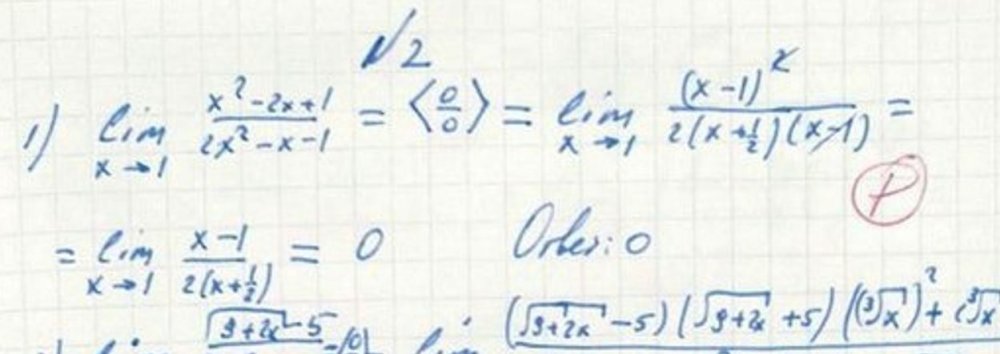 №2
1) lim x→1 (x²-2x+1)/(2x²-x-1) = <0/0> = lim x→1 (x-1)²/(2(x+1/2)(x-1)) =
P
= lim x→1 (x-1)/(2(x+1/2)) = 0 Ответ: 0
lim √9+2x -5 lim (√9+2x -5)(√9+2x +5)((³√x)²+